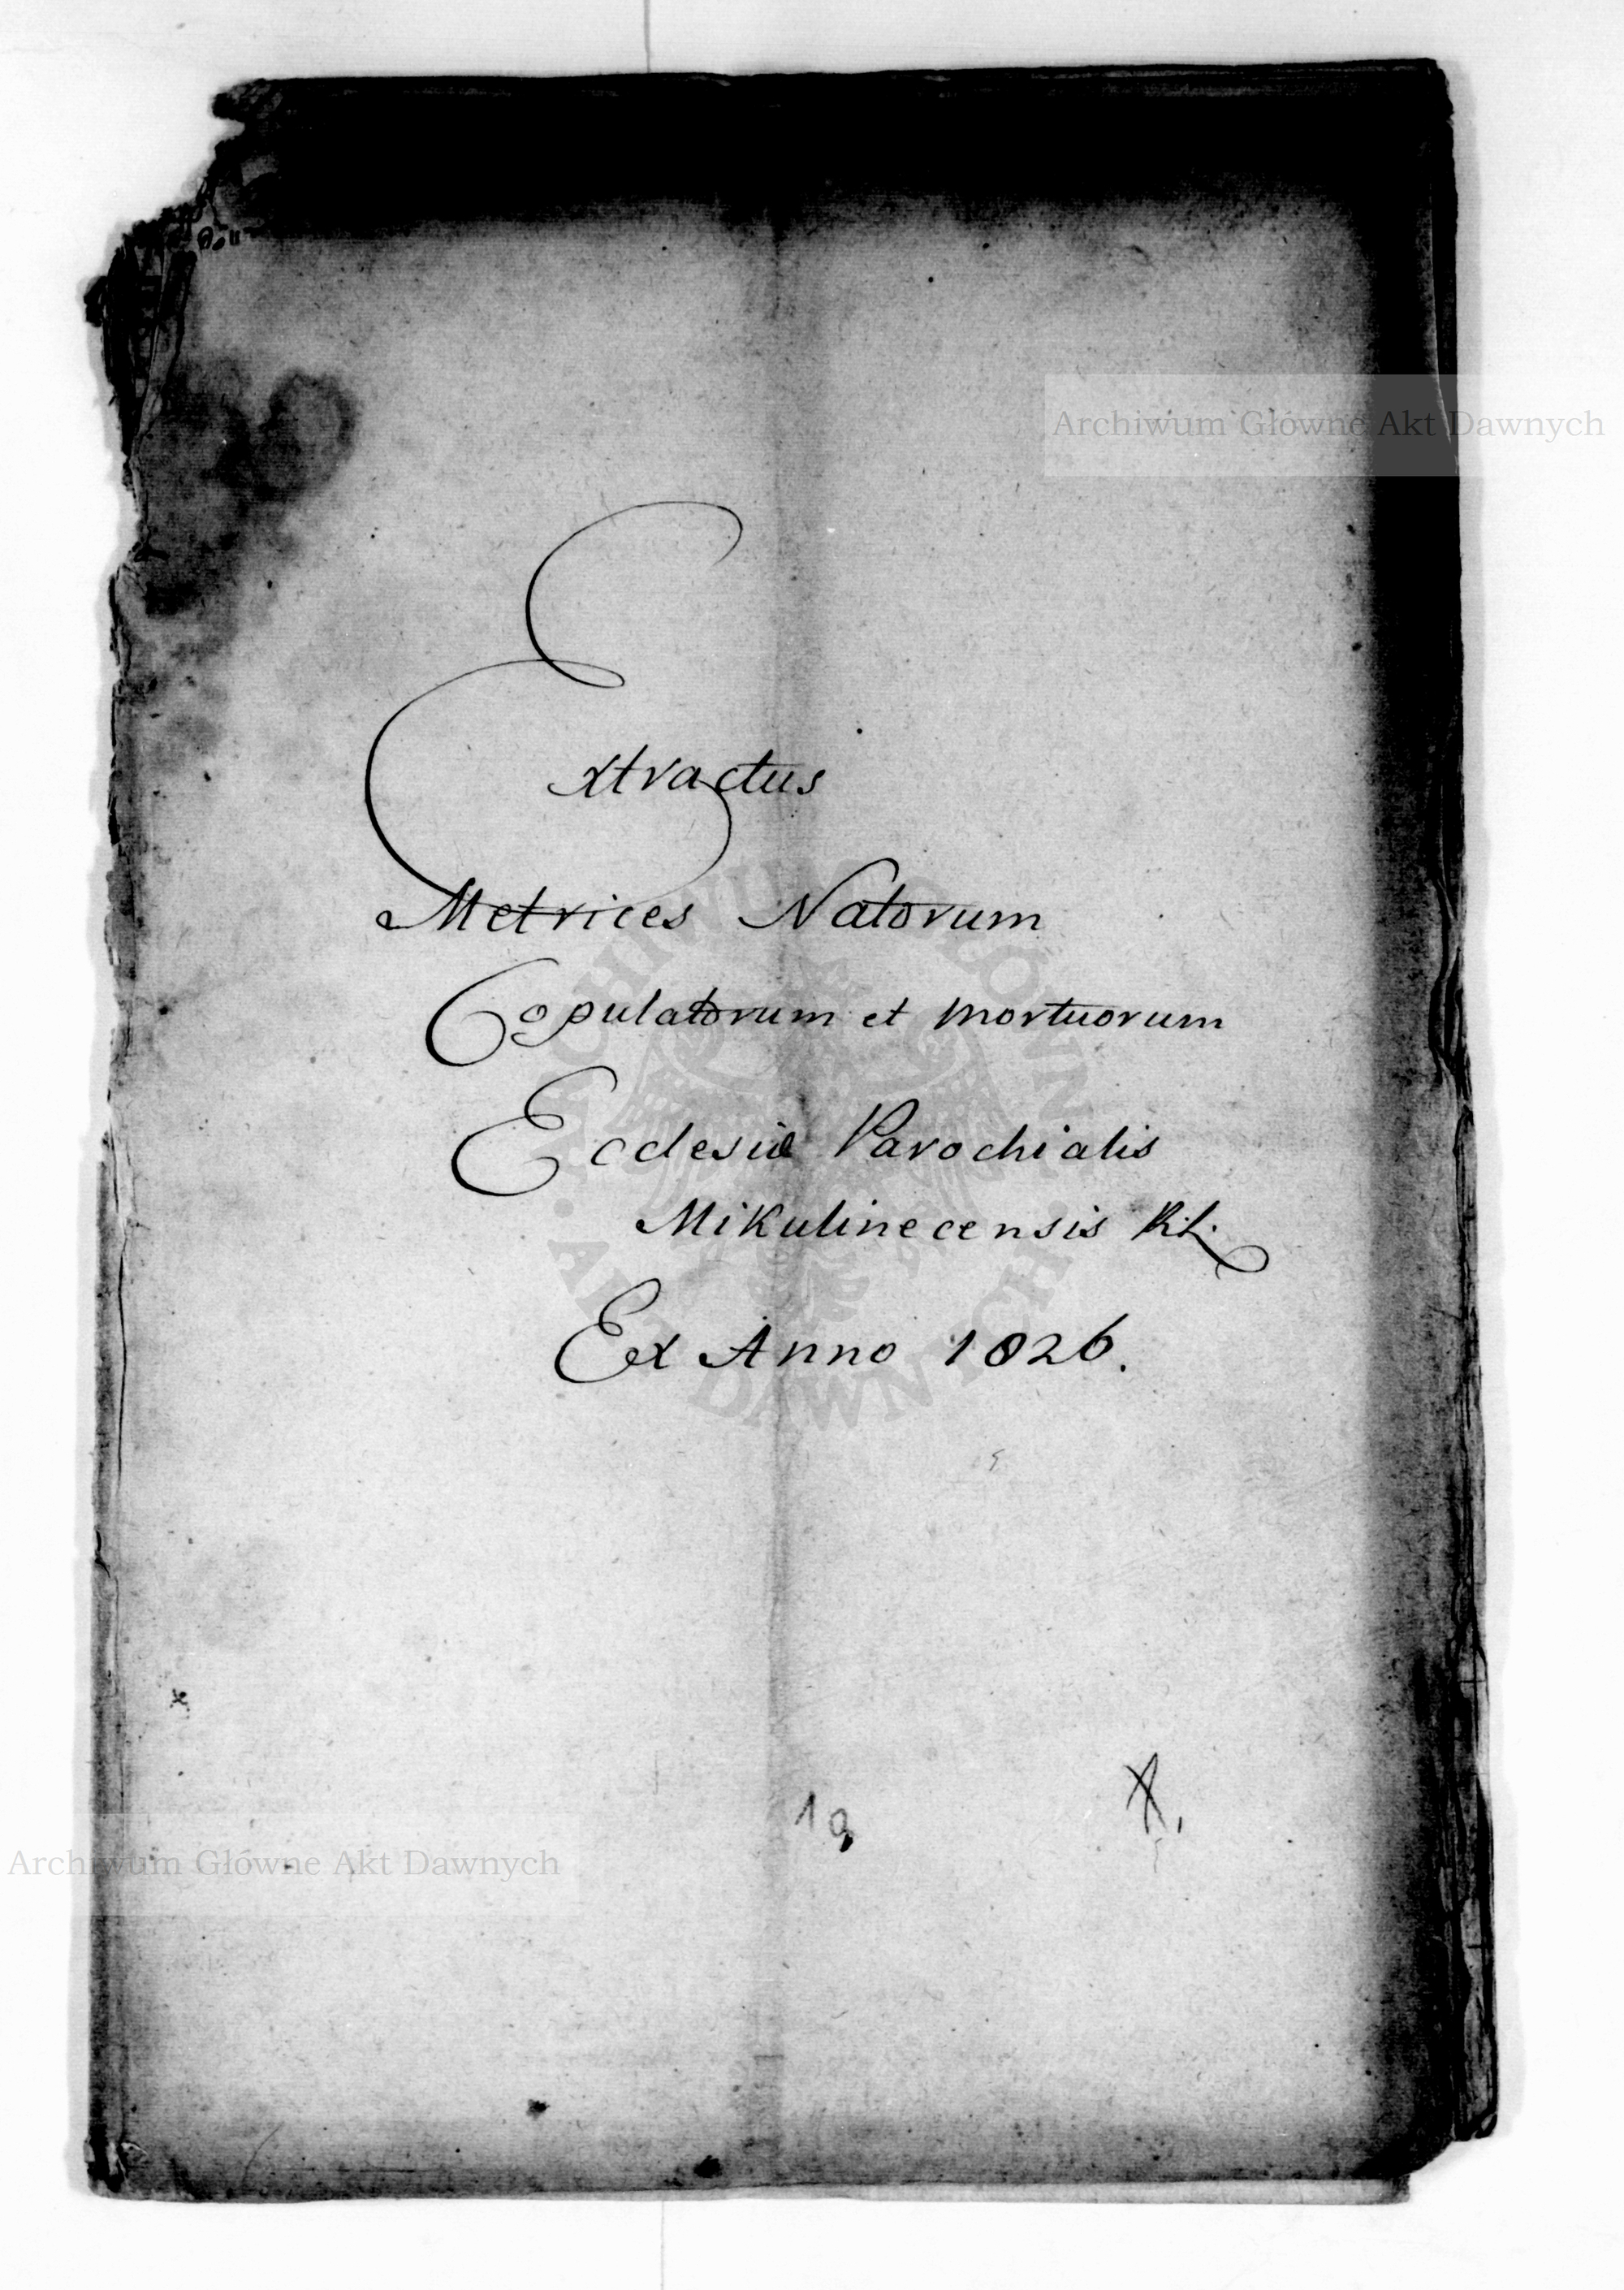 Archiwum Główne Akt Dawnych
Extractus
Metrices Natorum
Copulatorum et Mortuorum
Ecclesiæ Parochialis
Mikulinecensis R.L.
Ex Anno 1826.
ARCHIWUM GŁÓWNE
AKT DAWNYCH
19
Archiwum Główne Akt Dawnych